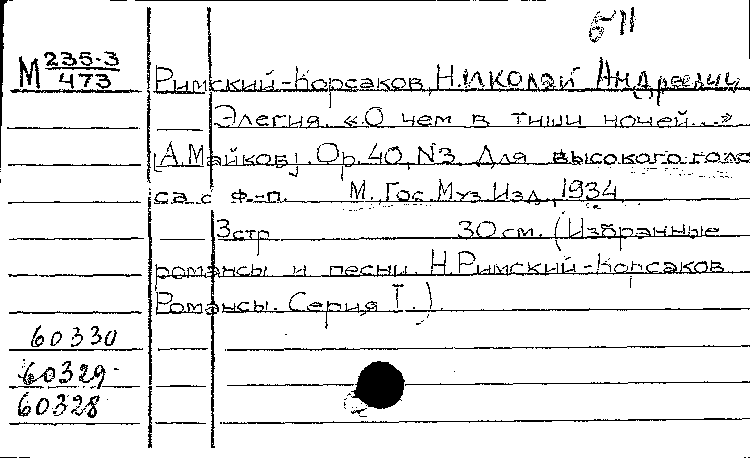 БП
М 235-3
473
Римский-Корсаков, Николай Андреевич
Элегия. «О чем в тиши ночей...»
[А. Майков]. Ор. 40, N3. Для высокого голо-
са с ф.-п. М., Гос. Муз. Изд., 1934
3 стр 30 см. (Избранные
романсы и песни. Н. Римский-Корсаков
Романсы. Серия I.)
60330
60329
60328